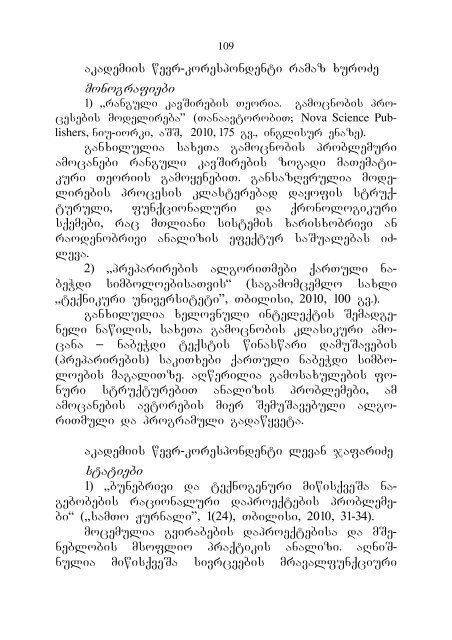 109
აკადემიის წევრ-კორესპონდენტი რამაზ ხუროძე
მონოგრაფიები
1) „რანგული კავშირების თეორია. გამოცნობის პრო-
ცესების მოდელირება” (თანაავტორობით; Nova Science Pub-
lishers, ნიუ-იორკი, აშშ, 2010, 175 გვ., ინგლისურ ენაზე).
განხილულია სახეთა გამოცნობის პრობლემური
ამოცანები რანგული კავშირების ზოგადი მათემატი-
კური თეორიის გამოყენებით. განსაზღვრულია მოდე-
ლირების პროცესის კლასტერებად დაყოფის სტრუქ-
ტურული, ფუნქციონალური და ქრონოლოგიკური
სქემები, რაც მთლიანი სისტემის ხარისხობრივი ან
რაოდენობრივი ანალიზის ეფექტურ საშუალებას იძ-
ლევა.
2) „პრეპარირების ალგორითმები ქართული ნა-
ბეჭდი სიმბოლოებისათვის“ (საგამომცემლო სახლი
„ტექნიკური უნივერსიტეტი”, თბილისი, 2010, 100 გვ.).
განხილულია ხელოვნული ინტელექტის შემადგე-
ნელი ნაწილის, სახეთა გამოცნობის კლასიკური ამო-
ცანა – ნაბეჭდი ტექსტის წინასწარი დამუშავების
(პრეპარირების) საკითხები ქართული ნაბეჭდი სიმბო-
ლოების მაგალითზე. აღწერილია გამოსახულების ფო-
ნური სტრუქტურებით ანალიზის პრობლემები, ამ
ამოცანების ავტორების მიერ შემუშავებული ალგო-
რითმული და პროგრამული გადაწყვეტა.
აკადემიის წევრ-კორესპონდენტი ლევან ჯაფარიძე
სტატიები
1) „ბუნებრივი და ტექნოგენური მიწისქვეშა ნა-
გებობების რაციონალური დაპროექტების პრობლემე-
ბი“ („სამთო ჟურნალი”, 1(24), თბილისი, 2010, 31-34).
მოცემულია გვირაბების დაპროექტებისა და მშე-
ნებლობის მსოფლიო პრაქტიკის ანალიზი. აღნიშ-
ნულია მიწისქვეშა სივრცეების მრავალფუნქციური